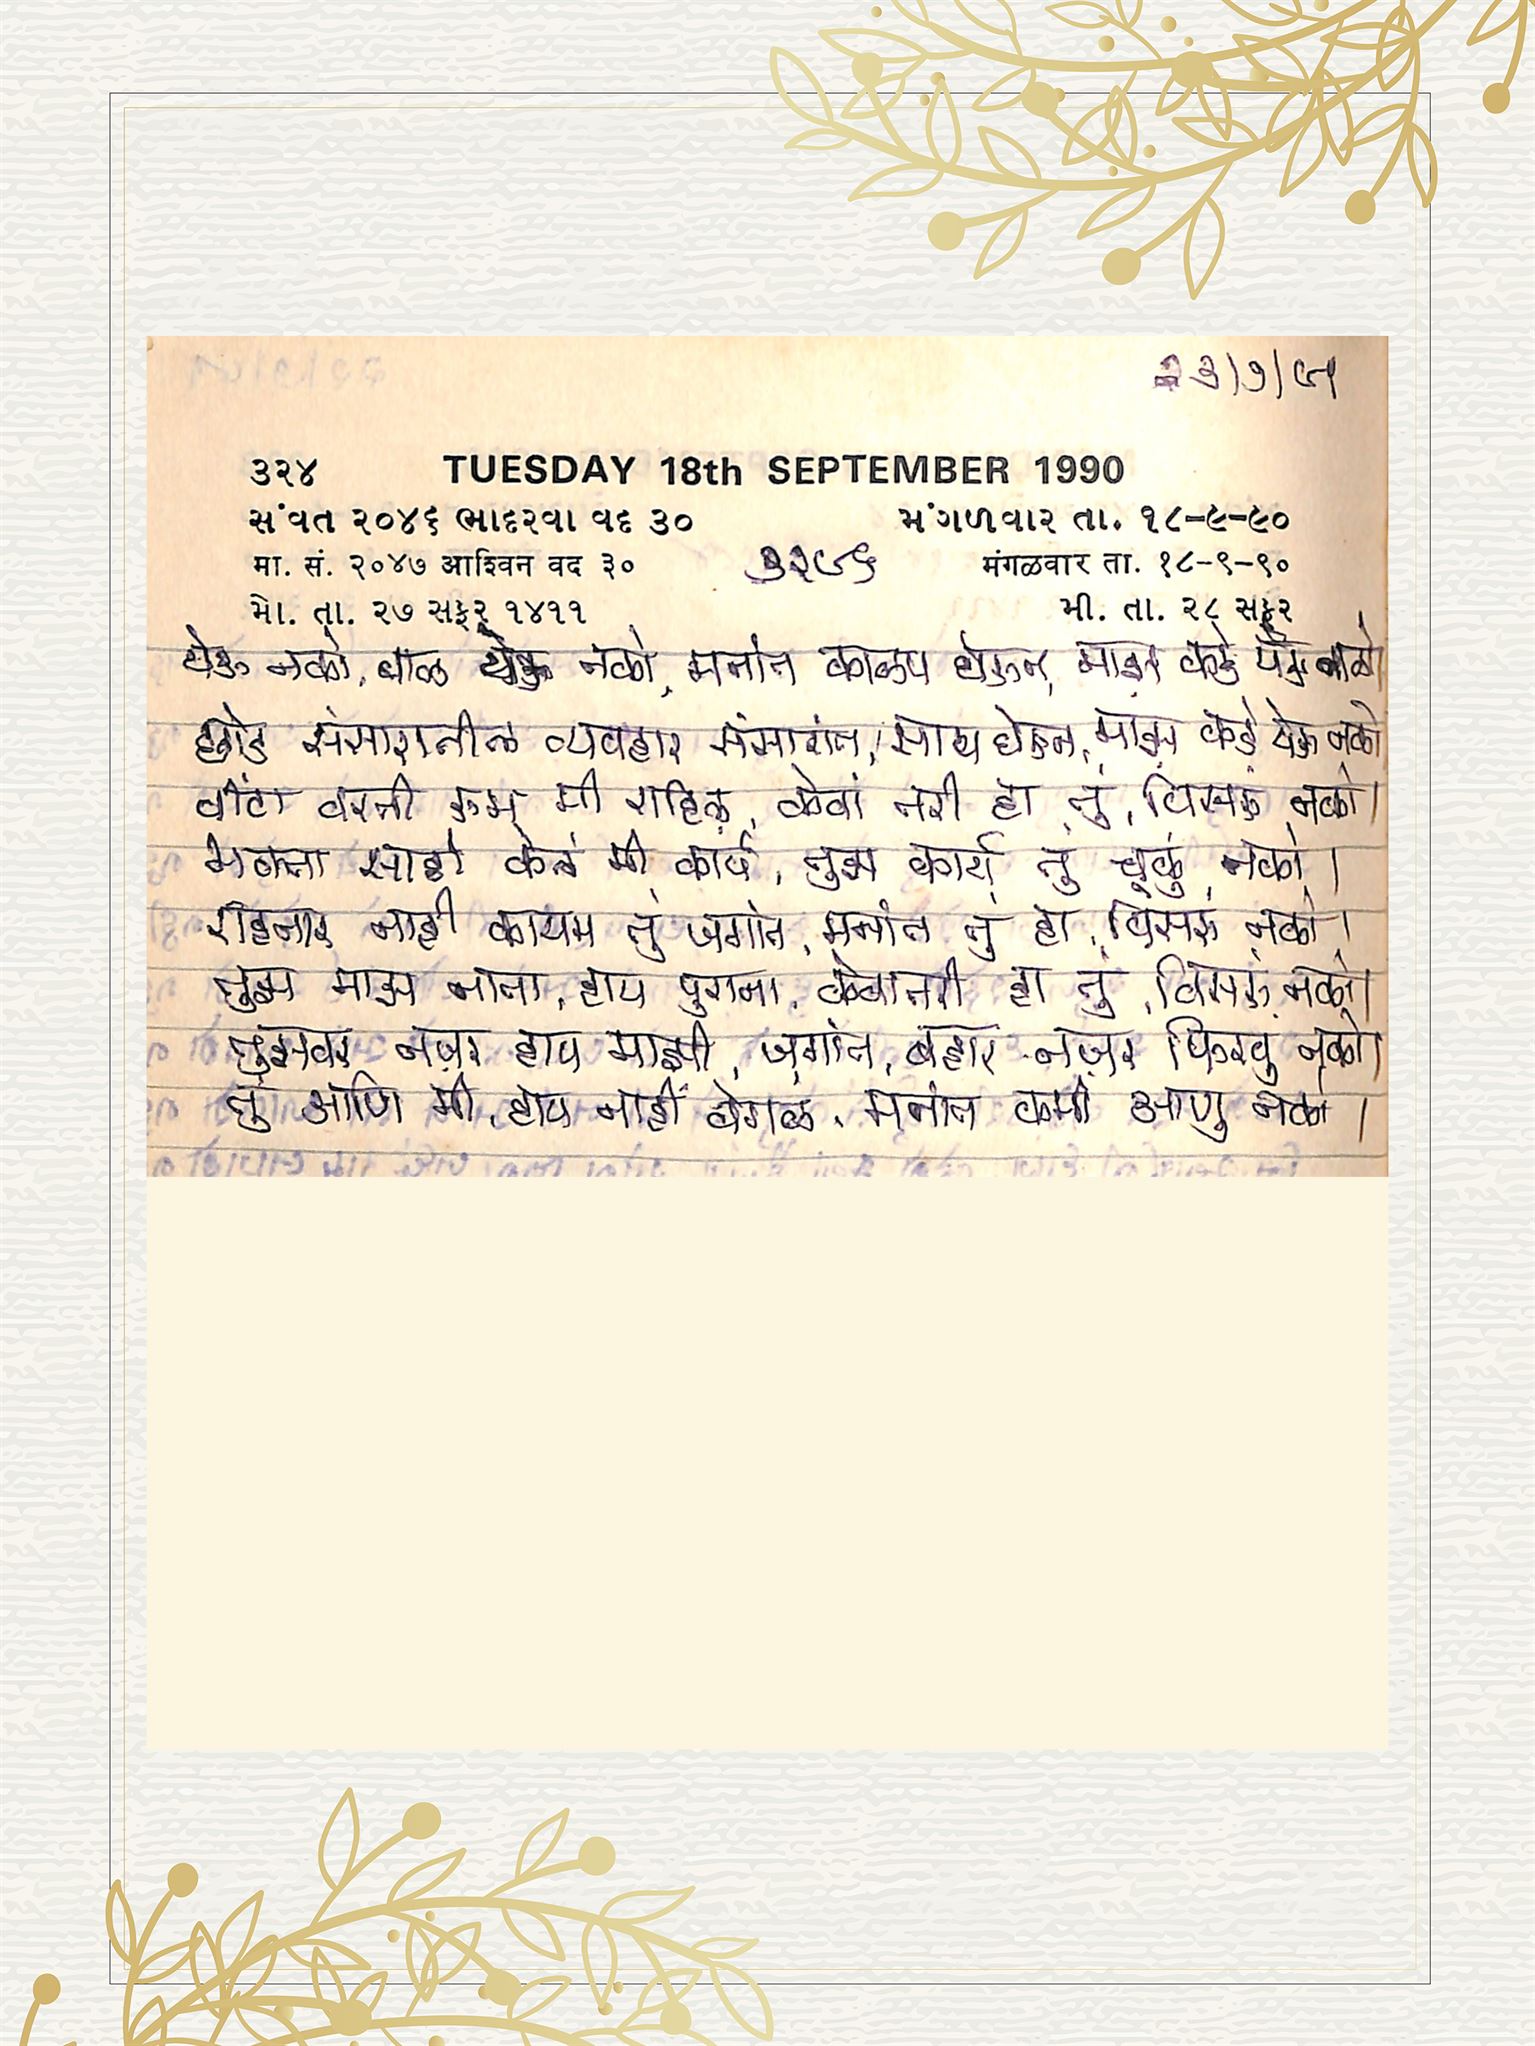 ૩૨૪ TUESDAY 18th SEPTEMBER 1990
સંવત ૨૦૪૬ ભાદરવા વદ ૩૦ મંગળવાર તા. ૧૮-૯-૯૦
मा. सं. २०४७ आश्विन वद ३० मंगळवार ता. १८-९-९०
મો. તા. ૨૭ સફર ૧૪૧૧ મી. તા. ૨૮ સફર
येऊ नको, नको, मनांत काळप घेऊन, माझ कडे येऊ नको
छोड संसारातील व्यवहार संसारांत, साथ घेऊन, माझ कडे येऊ नको
वरती मी राहिल, केवां तरी हा तुं, विसरु नको।
भक्ता साठी केलं मी कार्य, तुझ कार्य तुं चूकुं नको।
राहनार नाही कायम तुं जगांत, मनांत तुं हा, विसरु नको।
तुझ माझ नाता, हाय पुराना, केवातरी हा तुं, विसरु नको।
तुझावर नज़र हाय माझी, जगांत, बहार नज़र फिरवु नको।
तुं आणि मी, हाय नाहीं वेगळ, मनांत कमी आणु नको।